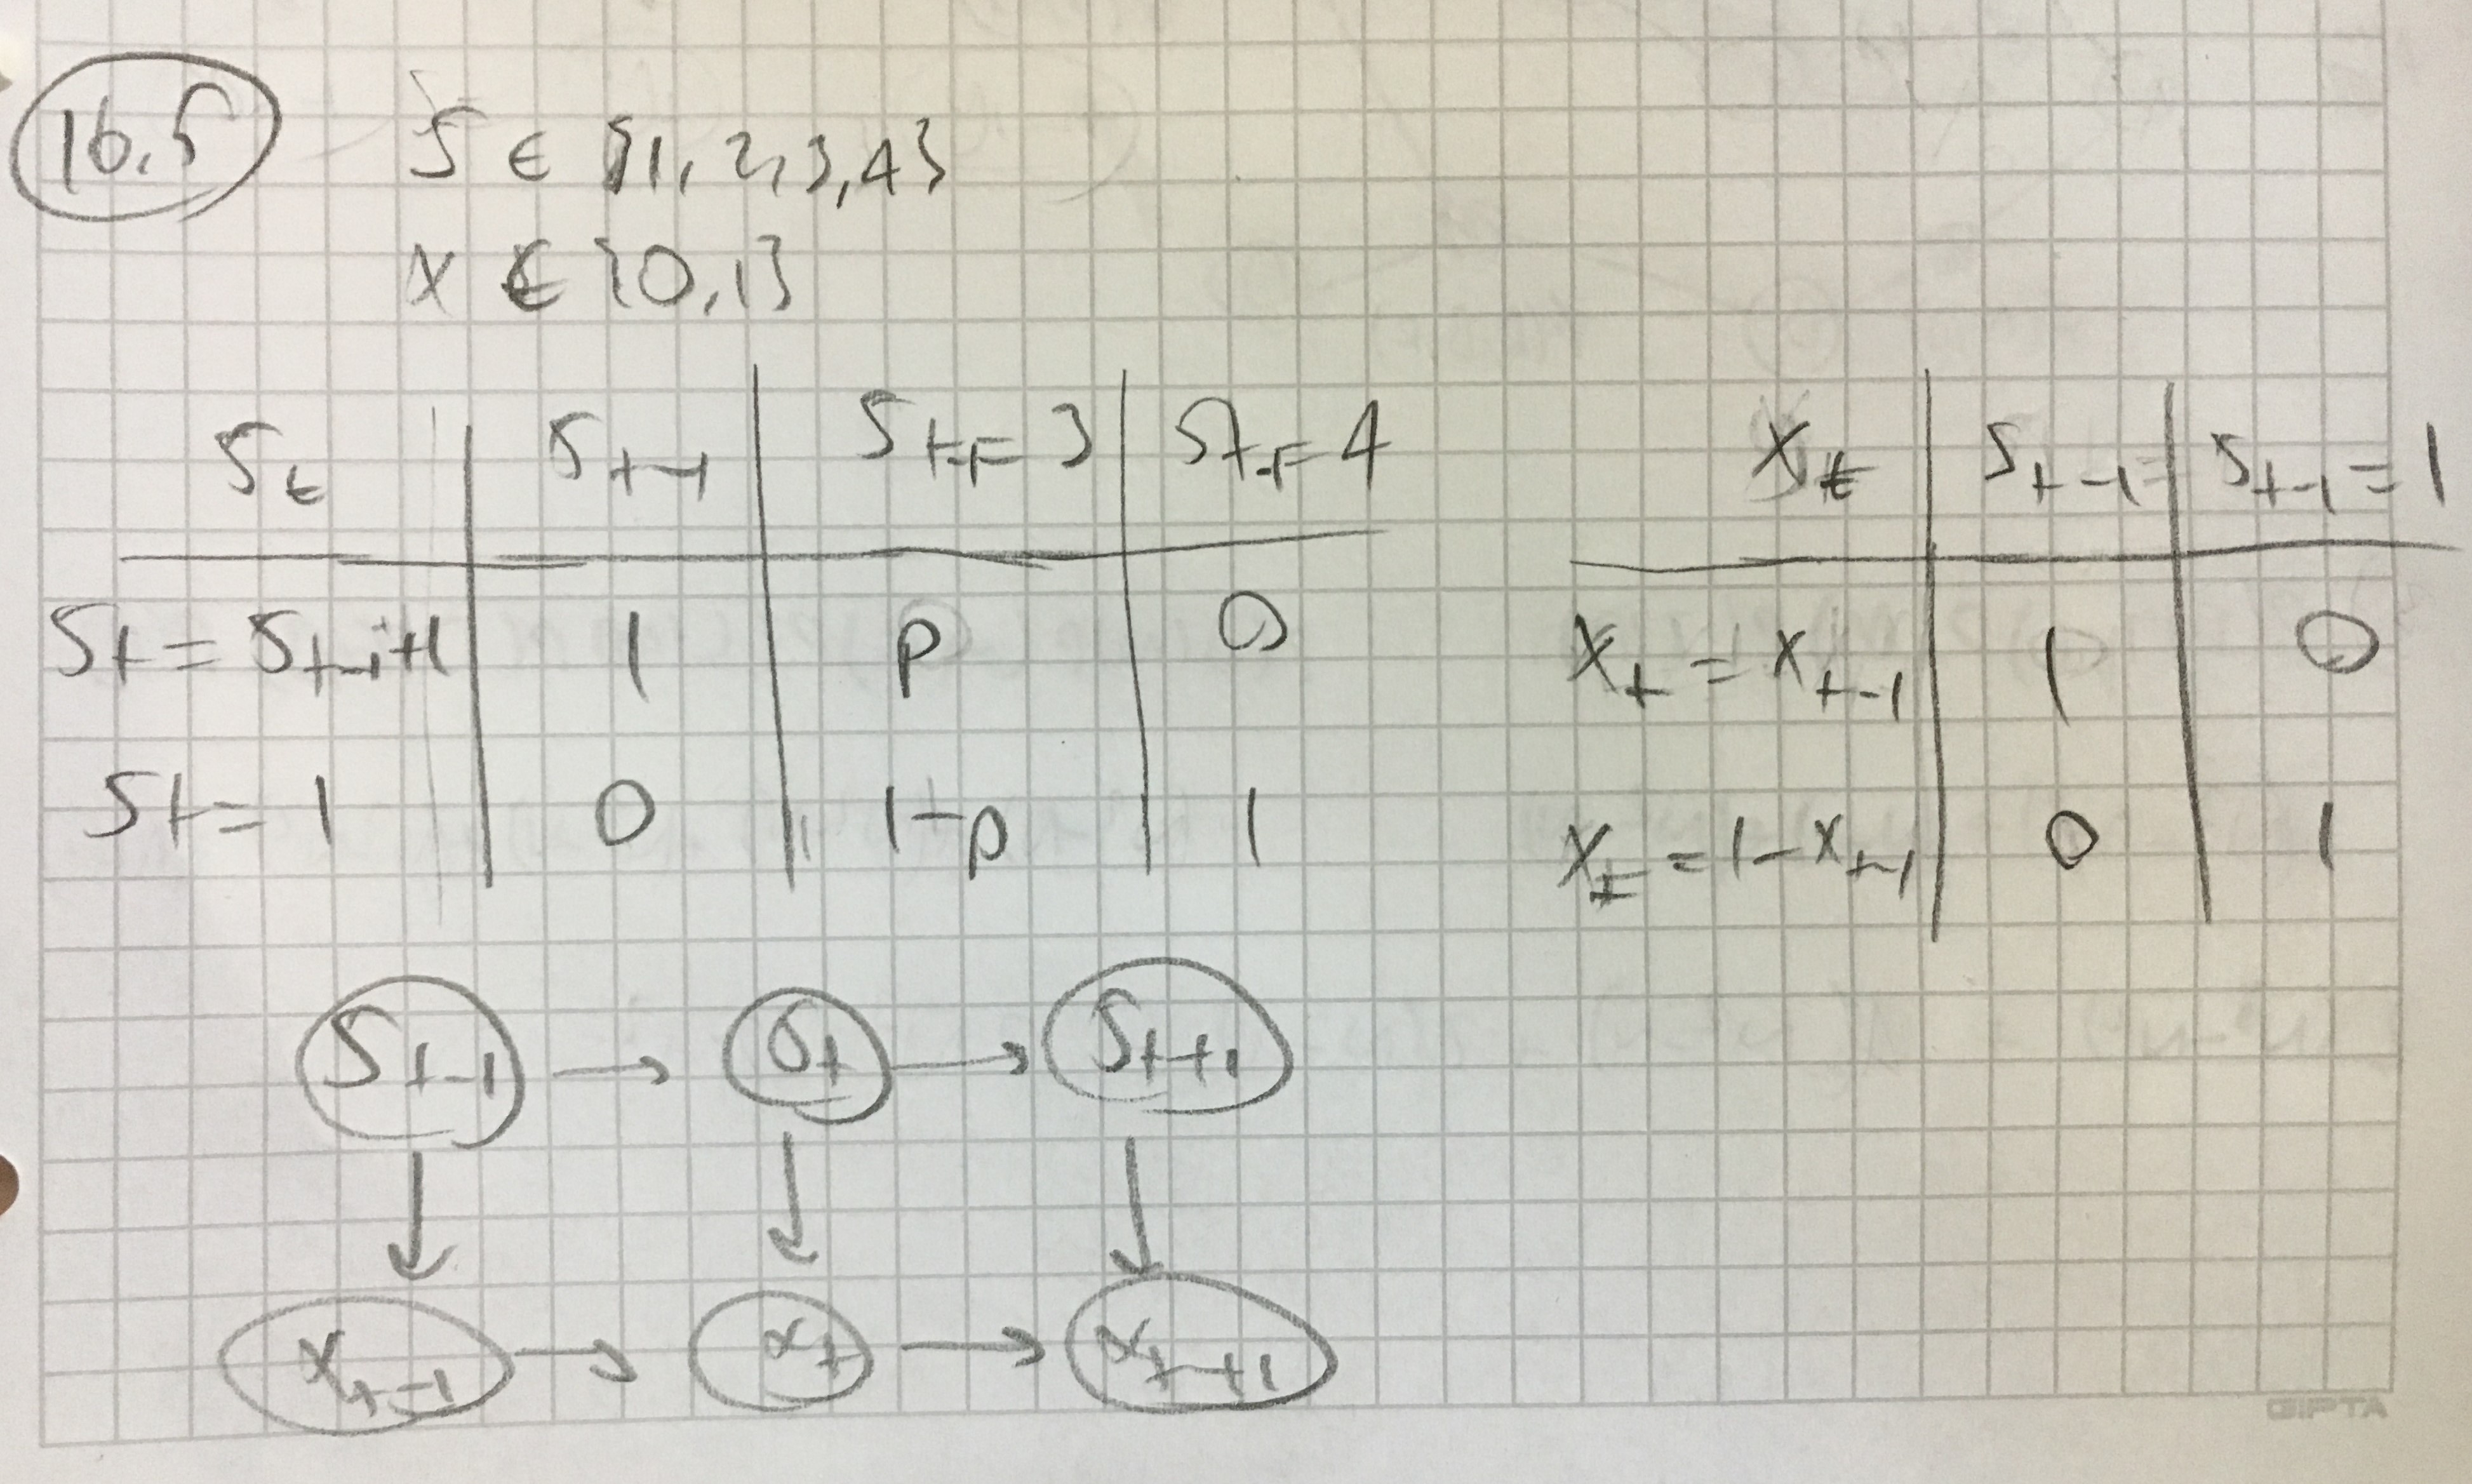 16.5
S ∈ {1, 2, 3, 4}
x ∈ {0, 1}
S_t | S_{t-1} | S_{t-1} = 3 | S_{t-1} = 4
S_t = S_{t-1}+1 | 1 | p | 0
S_t = 1 | 0 | 1-p | 1
x_t | S_{t-1} | S_{t-1} = 1
x_t = x_{t-1} | 1 | 0
x_t = 1-x_{t-1} | 0 | 1
S_{t-1} → S_t → S_{t+1}
x_{t-1} → x_t → x_{t+1}
GIPTA